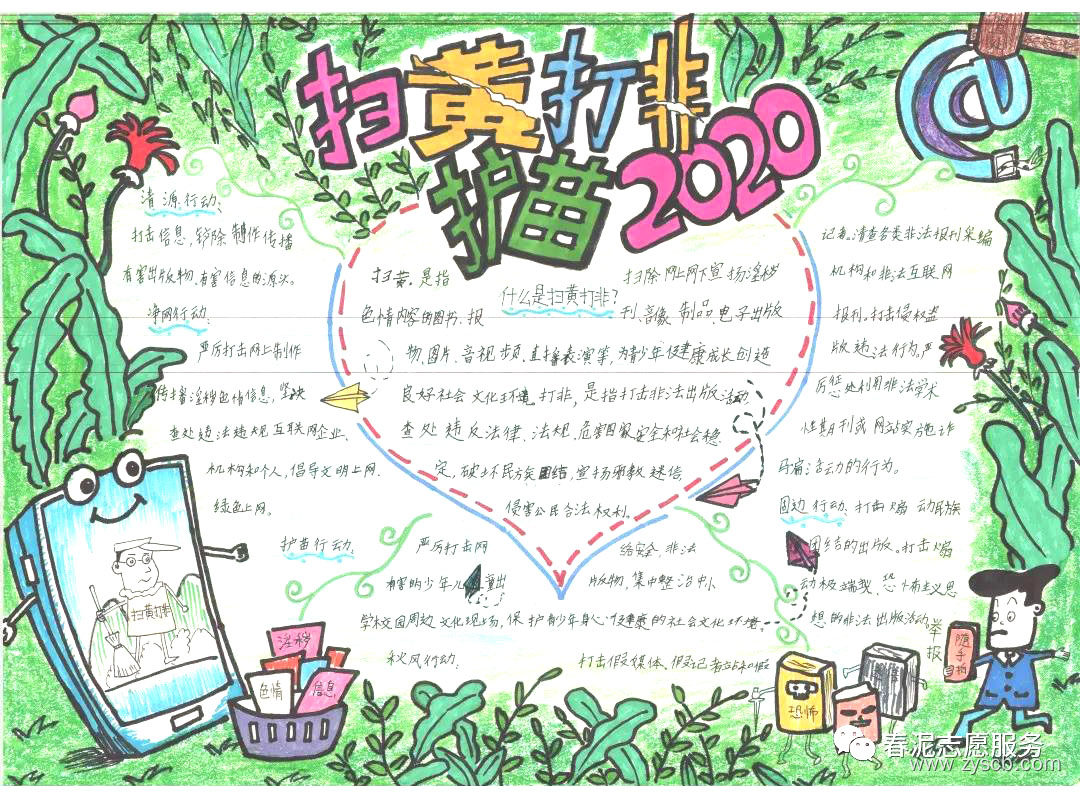 扫黄打非
护苗2020
清源行动:
打击信息,铲除制作传播
有害出版物、有害信息的源头。
净网行动:
严厉打击网上制作
传播淫秽色情信息,坚决
查处违法违规互联网企业、
机构和个人,倡导文明上网.
绿色上网。
什么是扫黄打非?
扫黄.是指 扫除网上网下宣扬淫秽
色情内容的图书.报 刊、音像制品、电子出版
物、图片、音视频、直播表演等,为青少年健康成长创造
良好社会文化环境.打非,是指打击非法出版活动,
查处违反法律、法规、危害国家安全和社会稳
定,破坏民族团结,宣扬邪教迷信,
侵害公民合法权利。
护苗行动:
严厉打击网 络安全、非法
有害的少年儿童出 版物,集中整治中小
学校园周边文化现场,保护青少年身心健康的社会文化环境。
秋风行动: 打击假媒体、假记者站和假
记者。清查各类非法报刊采编
机构和非法互联网
报刊。打击侵权盗
版违法行为,严
厉惩处利用非法学术
性期刊或网站实施诈
骗活动的行为。
固边行动:打击煽动民族
团结的出版。打击煽
动极端型、恐怖主义思
想的非法出版活动。
扫黄打非
淫秽
色情
信息
恐怖
举报
随手拍
春泥志愿服务
www.zyscb.com